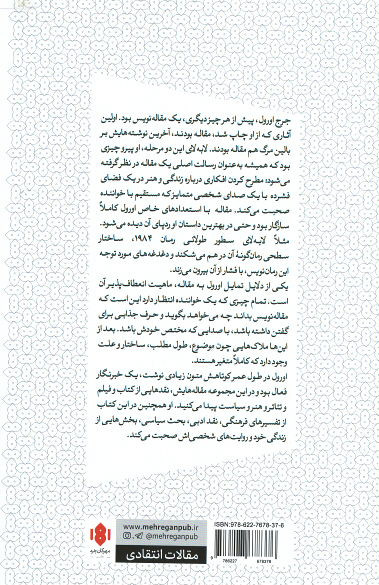 جرج اورول، پیش از هر چیز دیگری، یک مقاله‌نویس بود. اولین
آثاری که از او چاپ شد، مقاله بودند، آخرین نوشته‌هایش بر
بالین مرگ هم مقاله بودند. لابه‌لای این دو مرحله، او پیرو چیزی
بود که همیشه به‌عنوان رسالت اصلی یک مقاله در نظر گرفته
می‌شود: مطرح کردن افکاری درباره زندگی و هنر در یک فضای
فشرده با یک صدای شخصی متمایز که مستقیم با خواننده
صحبت می‌کند. مقاله با استعدادهای خاص اورول کاملاً
سازگار بود و حتی در بهترین داستان او ردپای آن دیده می‌شود.
مثلاً لابه‌لای سطور طولانی رمان ۱۹۸۴، ساختار
سطحی رمان‌گونهٔ آن در هم می‌شکند و دغدغه‌های مورد توجه
این رمان‌نویس، با فشار از آن بیرون می‌زند.
یکی از دلایل تمایل اورول به مقاله، ماهیت انعطاف‌پذیر آن
است. تمام چیزی که یک خواننده انتظار دارد این است که
مقاله‌نویس بداند چه می‌خواهد بگوید و حرف جذابی برای
گفتن داشته باشد، با صدایی که مختص خودش باشد. بعد از
این‌ها ملاک‌هایی چون موضوع، طول مطلب، ساختار و علت
وجود دارد که کاملاً متغیر هستند.
اورول در طول عمر کوتاهش متون زیادی نوشت، یک خبرنگار
فعال بود و در این مجموعه مقاله‌هایش، نقدهایی از کتاب و فیلم
و تئاتر و هنر و سیاست پیدا می‌کنید. او همچنین در این کتاب
از تفسیرهای فرهنگی، نقد ادبی، بحث سیاسی، بخش‌هایی از
زندگی خود و روایت‌های شخصی‌اش صحبت می‌کند.
ISBN:978-622-7678-37-6
9 786227 678376
www.mehreganpub.ir
@mehreganpub
مقالات انتقادی
مهرگان خرد